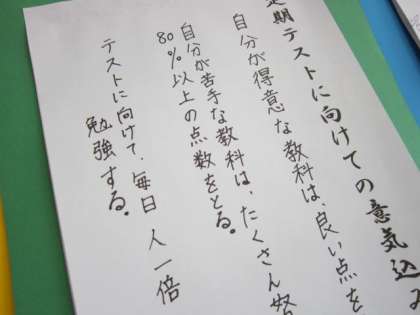 定期テストに向けての意気込み
自分が得意な教科は、良い点を
自分が苦手な教科は、たくさん努
80%以上の点数をとる。
テストに向けて、毎日 人一倍
勉強する。